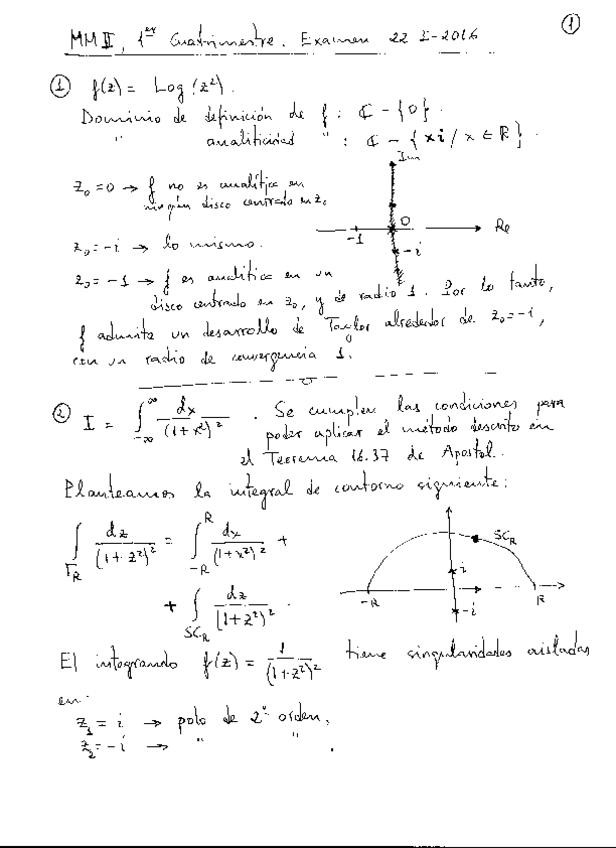 ①
MMII, 1er Cuatrimestre. Examen 22-I-2016
① f(z) = Log(z²).
Dominio de definición de f : ℂ - {0}.
" analiticidad " : ℂ - {xi / x ∈ ℝ}.
Im
z₀=0 → f no es analítica en
ningún disco centrado en z₀
0
Re
-1
-i
z₀=-i → lo mismo.
z₀=-1 → f es analítica en un
disco centrado en z₀, y de radio 1. Por lo tanto,
f admite un desarrollo de Taylor alrededor de z₀=-i,
con un radio de convergencia 1.
② I = ∫_{-∞}^{∞} dx/(1+x²)². Se cumplen las condiciones para
poder aplicar el método descrito en
el Teorema 16.37 de Apostol.
Planteamos la integral de contorno siguiente:
∫_{Γ_R} dz/(1+z²)² = ∫_{-R}^{R} dx/(1+x²)² +
SC_R
i
+ ∫_{SC_R} dz/(1+z²)².
-R
-i
R
El integrando f(z) = 1/(1+z²)² tiene singularidades aisladas
en:
z₁ = i → polo de 2º orden,
z₂=-i → " " .